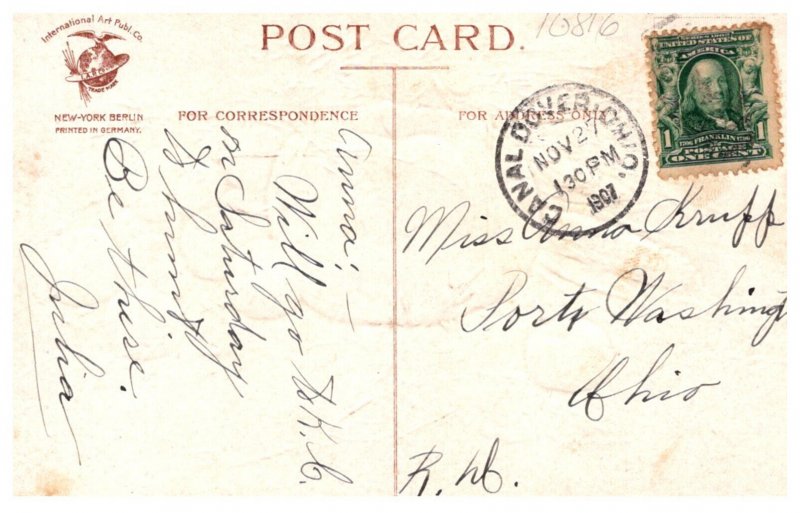 10816
International Art Publ. Co.
TRADE MARK
NEW-YORK BERLIN
PRINTED IN GERMANY.
POST CARD.
FOR CORRESPONDENCE
FOR ADDRESS ONLY
Anna:-
Will go to
on Saturday
Be there.
Julia
CANAL DOVER, OHIO.
NOV 27
130 PM
1907
SERIES 1902
UNITED STATES OF
AMERICA
1 FRANKLIN 1
POSTAGE
ONE CENT
Miss Anna Krupp
Port Washington
Ohio
R. D.